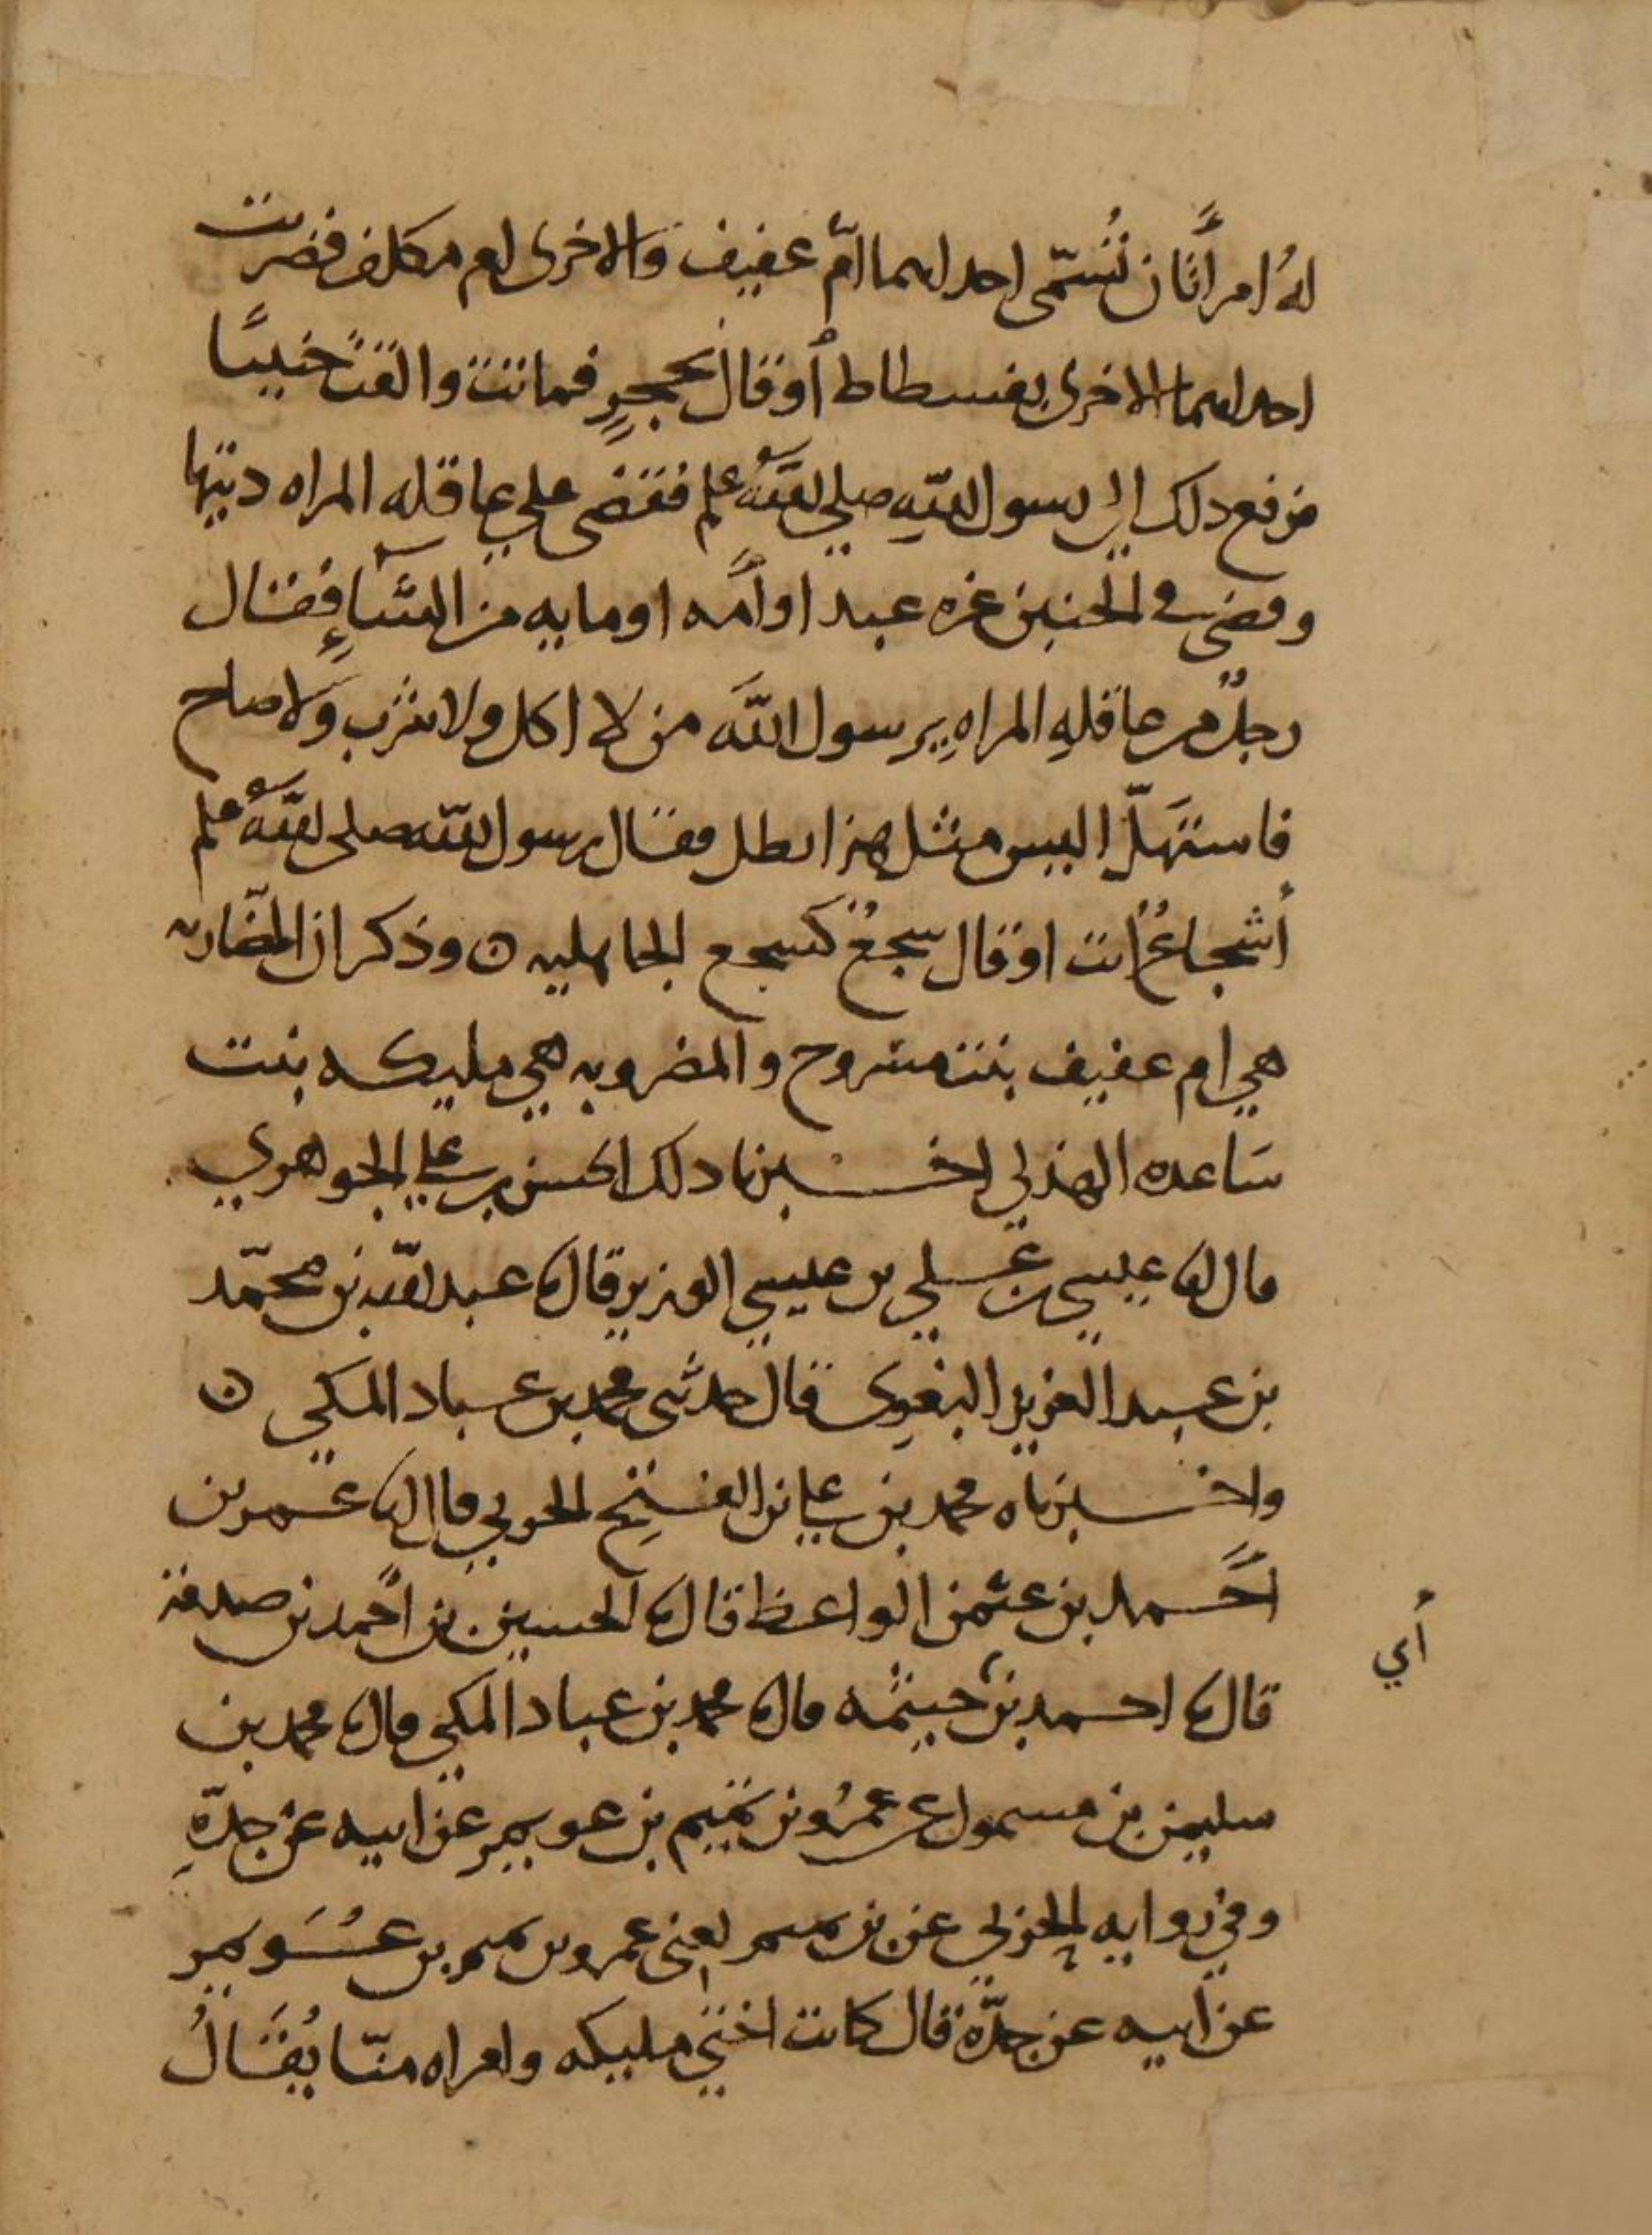 لهُ امرأتان تُسمّى احداهما امّ عفيف والاخرى ام مكلف فضربت
احداهما الاخرى بفسطاط أو قال بحجرٍ فماتت والقت جنينًا
فرفع ذلك الى رسول اللهِ صلى اللهُ علم فقضى على عاقله المراه ديتها
وقضى في الجنين غره عبد او أمه او مايه من الشاءِ فقال
رجلٌ من عاقلهِ المراهِ يرسول اللهَ من لا اكل ولا شرب ولا صاح
فاستهلّ اليس مثل هذا بطل فقال رسول الله صلى اللهُ علم
أشجاعٌ انت او قال سجعٌ كسجع الجاهليه ه وذكر ان الضاربه
هي ام عفيف بنت مسروح والمضروبه هي مليكه بنت
سَاعده الهذلي اخبرنا ذلك الحسن بن علي الجوهري
قال انا عيسى بن علي بن عيسى الوزير قال نا عبد الله بن محمّد
بن عبد العزيز البغوى قال حدثنى محمد بن عباد المكي ه
واخبرناه محمد بن علي بن الفتح الحربي قال انا عمر بن
احمد بن عثمن الواعظ قال نا الحسين بن احمد بن صدقة
قال نا احمد بن خيثمه قال نا محمد بن عباد المكي قال نا محمد بن
سليمن بن مسمول عن عمرُو بن تميم بن عويمر عن ابيه عن جدّهِ
وفي روايه الحربي عن بن تميم يعنى عمرو بن تميم بن عُوَيمر
عن ابيه عن جدّه قال كانت اختي مليكه وامراه منّا يُقَالُ
أبي